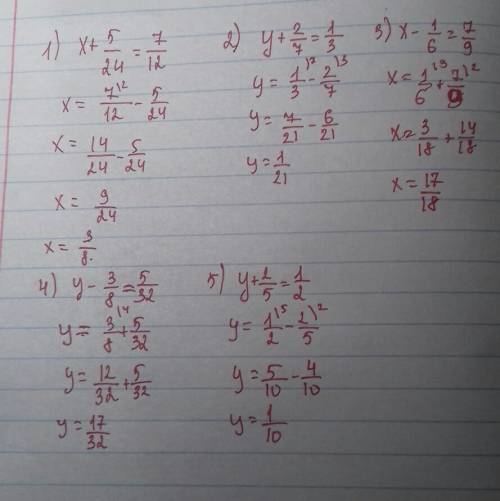 1) x + 5/24 = 7/12
x = 7/12 ⁾² - 5/24
x = 14/24 - 5/24
x = 9/24
x = 3/8.
2) y + 2/7 = 1/3
y = 1/3 ⁾⁷ - 2/7 ⁾³
y = 7/21 - 6/21
y = 1/21
3) x - 1/6 = 7/9
x = 1/6 ⁾³ + 7/9 ⁾²
x = 3/18 + 14/18
x = 17/18
4) y - 3/8 = 5/32
y = 3/8 ⁾⁴ + 5/32
y = 12/32 + 5/32
y = 17/32
5) y + 2/5 = 1/2
y = 1/2 ⁾⁵ - 2/5 ⁾²
y = 5/10 - 4/10
y = 1/10